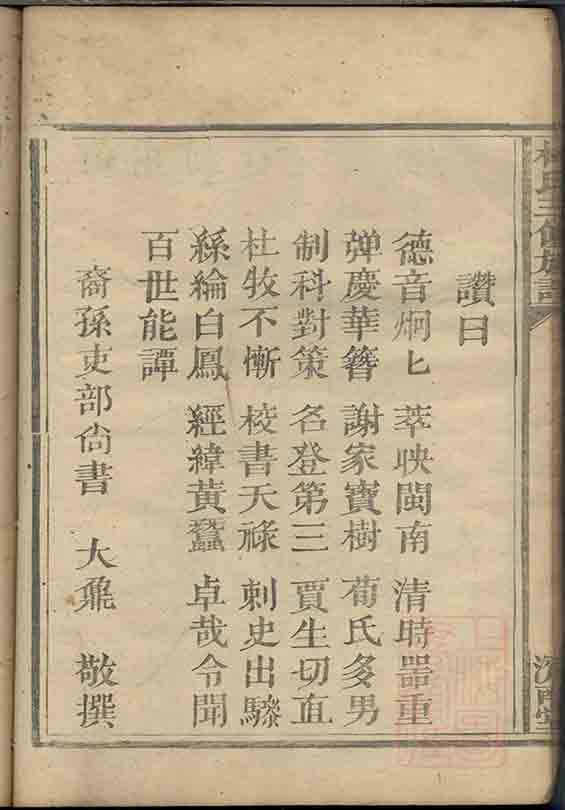 林氏三修族譜
讚曰
德音炯匕 萃映閩南 清時器重
彈慶華簪 謝家寶樹 荀氏多男
制科對策 名登第三 賈生切直
杜牧不慚 校書天祿 刺史出驂
絲綸白鳳 經緯黃蠶 卓哉令聞
百世能譚
裔孫吏部尙書 大鼐 敬撰